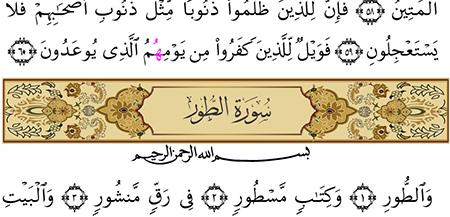 ٱلْمَتِينُ ﴿٥٨﴾ فَإِنَّ لِلَّذِينَ ظَلَمُوا۟ ذَنُوبًا مِّثْلَ ذَنُوبِ أَصْحَـٰبِهِمْ فَلَا
يَسْتَعْجِلُونِ ﴿٥٩﴾ فَوَيْلٌ لِّلَّذِينَ كَفَرُوا۟ مِن يَوْمِهِمُ ٱلَّذِى يُوعَدُونَ ﴿٦٠﴾
سُورَة الطُّور
بسم الله الرحمن الرحيم
وَٱلطُّورِ ﴿١﴾ وَكِتَـٰبٍ مَّسْطُورٍ ﴿٢﴾ فِى رَقٍّ مَّنشُورٍ ﴿٣﴾ وَٱلْبَيْتِ